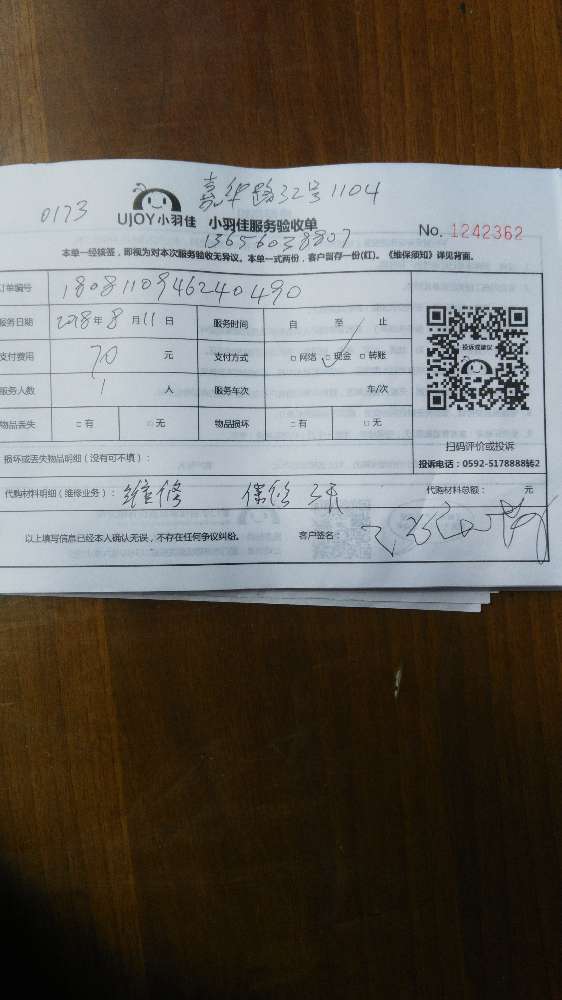 嘉华路32号1104
0173
UJOY小羽佳 小羽佳服务验收单
No. 1242362
13656038807
本单一经核签，即视为对本次服务验收无异议。本单一式两份，客户留存一份(红)。《维保须知》详见背面。
订单编号 1808110946240490
服务日期 2018年8月11日 服务时间 自 至 止
支付费用 70 元 支付方式 □网络 □现金 □转账
服务人数 1 人 服务车次 车/次
物品丢失 □有 □无 物品损坏 □有 □无
扫码评价或投诉
投诉电话：0592-5178888转2
损坏或丢失物品明细（没有可不填）：
代购材料明细（维修业务）： 维修 保修 代购材料总额： 元
以上填写信息已经本人确认无误，不存在任何争议纠纷。 客户签名：